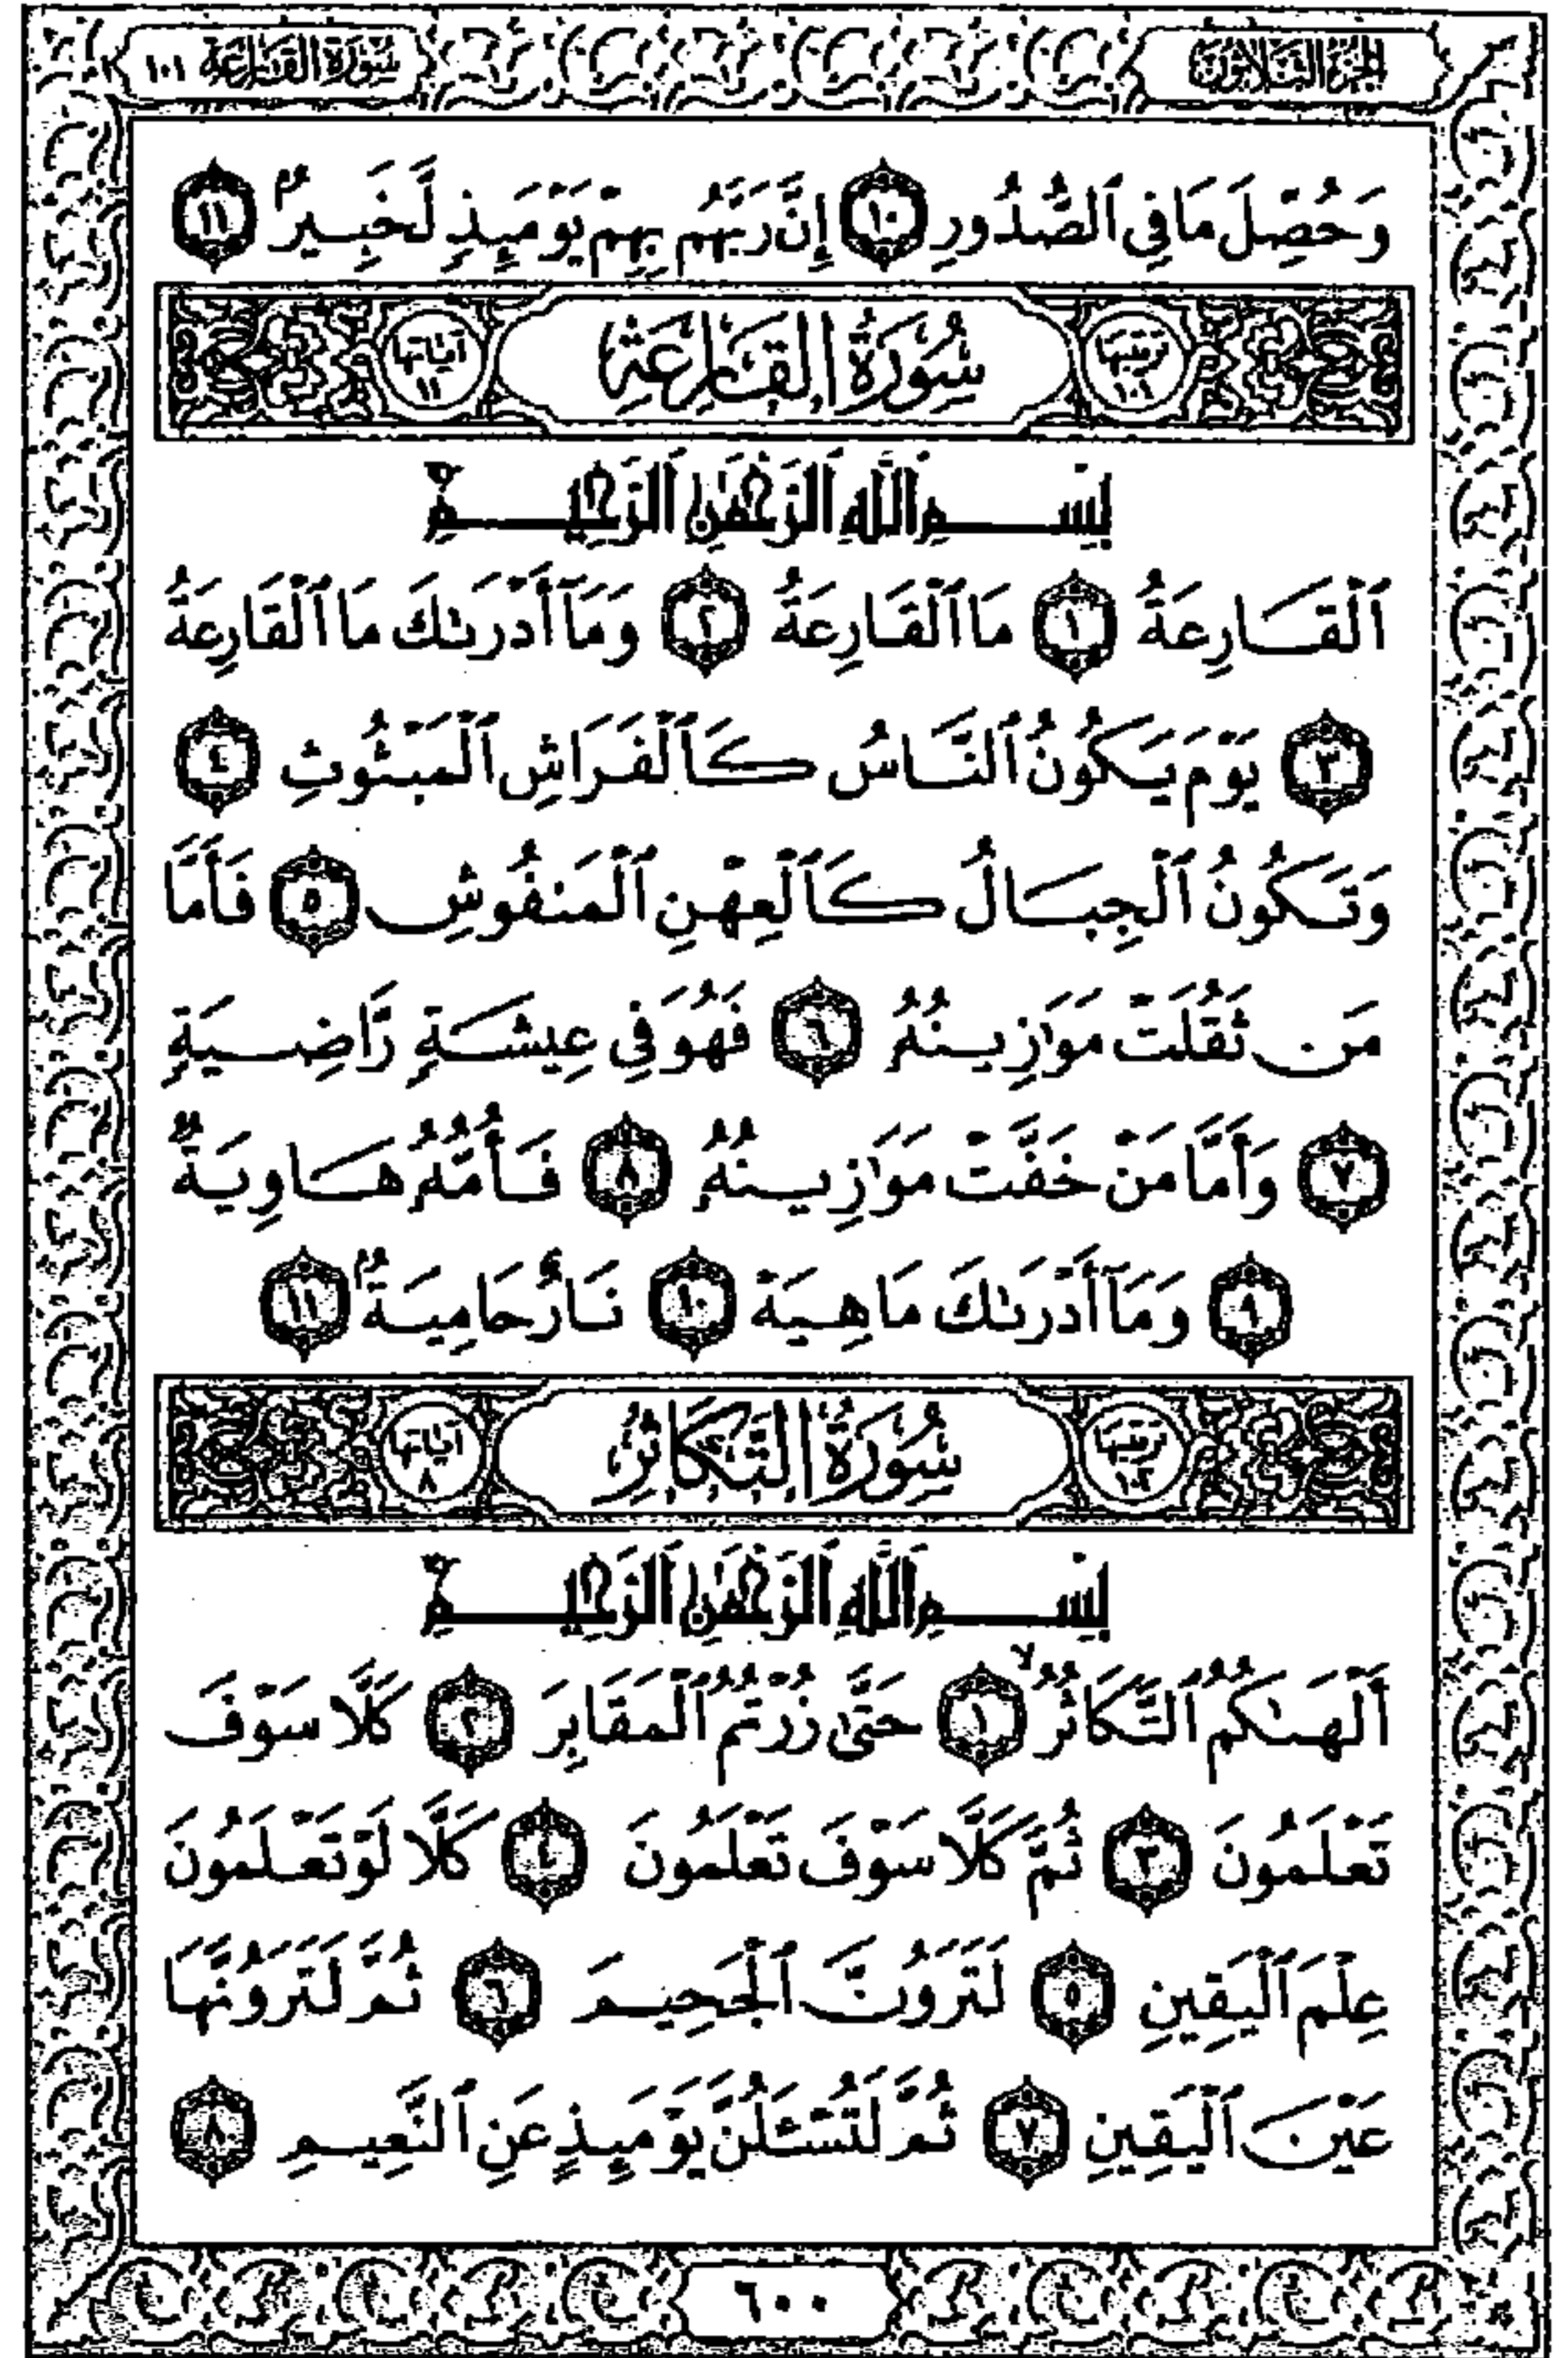 الجزء الثلاثون
سورة القارعة ١٠١
وَحُصِّلَ مَا فِي ٱلصُّدُورِ ١٠ إِنَّ رَبَّهُم بِهِمْ يَوْمَئِذٍ لَّخَبِيرٌۢ ١١
ترتيبها ١٠١ سُورَةُ القَارِعَةِ آياتها ١١
بِسْمِ ٱللَّهِ ٱلرَّحْمَٰنِ ٱلرَّحِيمِ
ٱلْقَارِعَةُ ١ مَا ٱلْقَارِعَةُ ٢ وَمَآ أَدْرَىٰكَ مَا ٱلْقَارِعَةُ
٣ يَوْمَ يَكُونُ ٱلنَّاسُ كَٱلْفَرَاشِ ٱلْمَبْثُوثِ ٤
وَتَكُونُ ٱلْجِبَالُ كَٱلْعِهْنِ ٱلْمَنفُوشِ ٥ فَأَمَّا
مَن ثَقُلَتْ مَوَٰزِينُهُۥ ٦ فَهُوَ فِي عِيشَةٍ رَّاضِيَةٍ
٧ وَأَمَّا مَنْ خَفَّتْ مَوَٰزِينُهُۥ ٨ فَأُمُّهُۥ هَاوِيَةٌ
٩ وَمَآ أَدْرَىٰكَ مَا هِيَهْ ١٠ نَارٌ حَامِيَةٌۢ ١١
ترتيبها ١٠٢ سُورَةُ التَّكَاثُرِ آياتها ٨
بِسْمِ ٱللَّهِ ٱلرَّحْمَٰنِ ٱلرَّحِيمِ
أَلْهَىٰكُمُ ٱلتَّكَاثُرُ ۙ ١ حَتَّىٰ زُرْتُمُ ٱلْمَقَابِرَ ٢ كَلَّا سَوْفَ
تَعْلَمُونَ ٣ ثُمَّ كَلَّا سَوْفَ تَعْلَمُونَ ٤ كَلَّا لَوْ تَعْلَمُونَ
عِلْمَ ٱلْيَقِينِ ٥ لَتَرَوُنَّ ٱلْجَحِيمَ ٦ ثُمَّ لَتَرَوُنَّهَا
عَيْنَ ٱلْيَقِينِ ٧ ثُمَّ لَتُسْـَٔلُنَّ يَوْمَئِذٍ عَنِ ٱلنَّعِيمِ ٨
٦٠٠